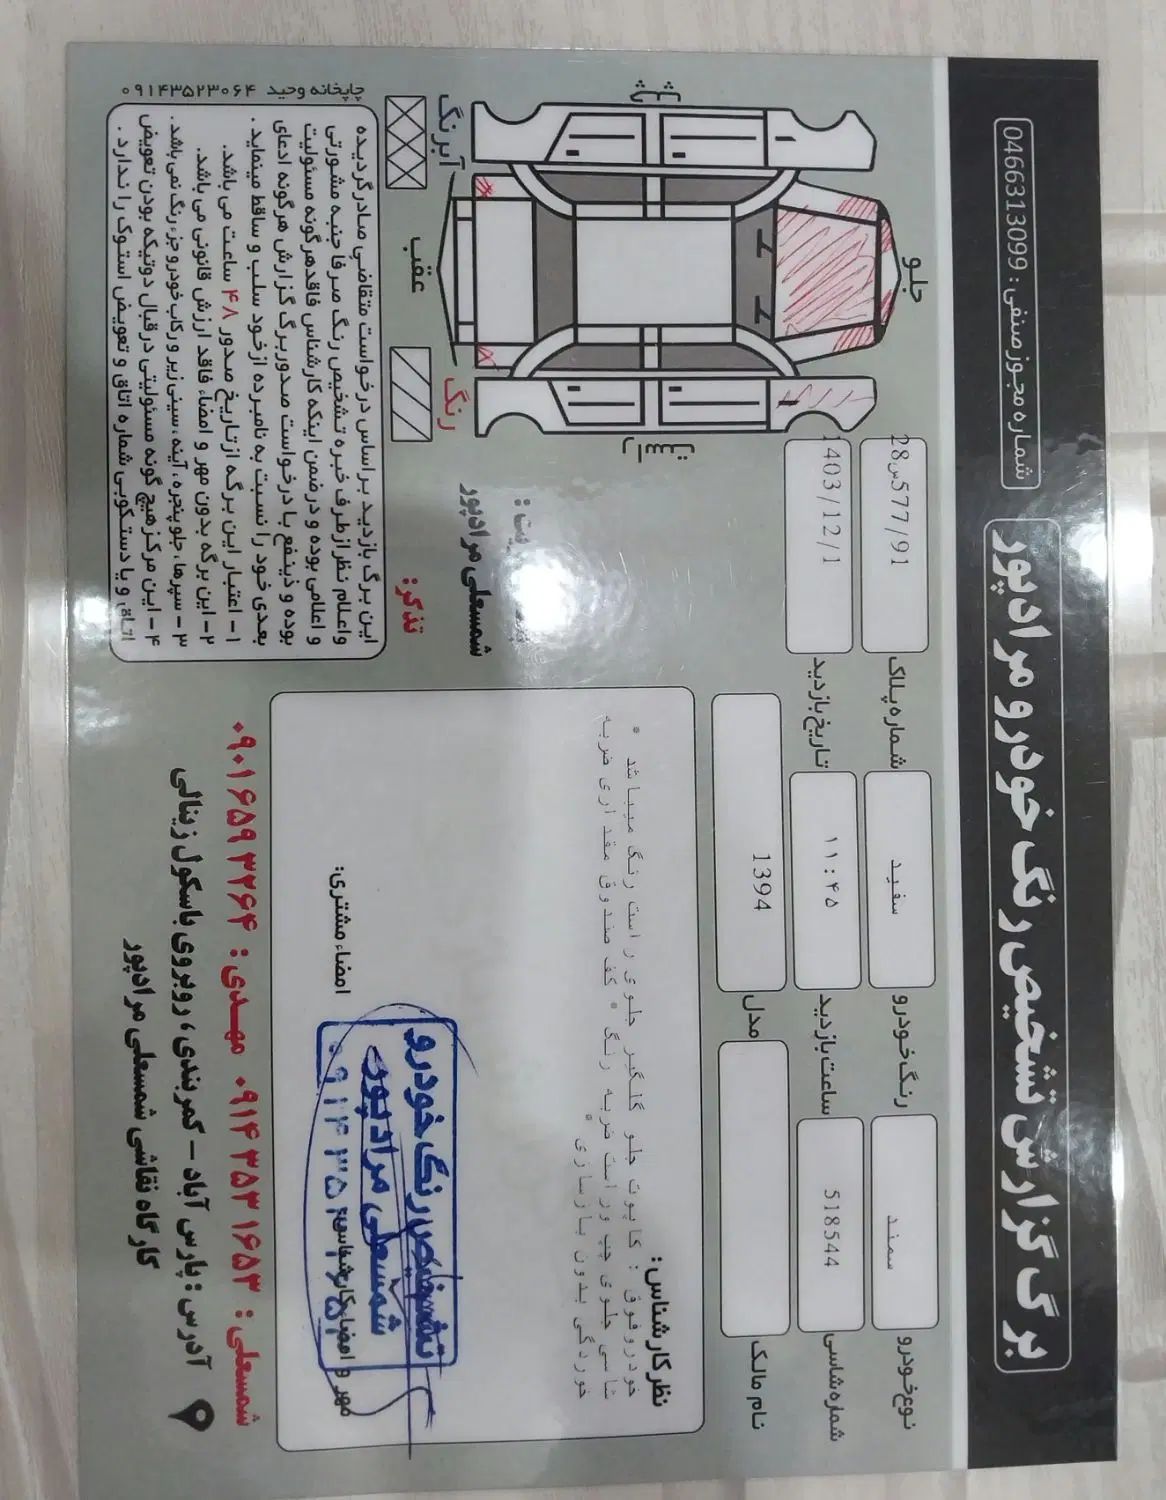 برگ گزارش تشخیص رنگ خودرو مرادپور
شماره مجوز صنفی : 0466313099
نوع خودرو سمند
رنگ خودرو سفید
شماره پلاک 28س577/91
شماره شاسی 518544
ساعت بازدید ۱۱:۴۵
تاریخ بازدید 1403/12/1
نام مالک
مدل 1394
جلو
عقب
راست
چپ
رنگ
آبرنگ
نظر کارشناس:
خودرو فوق : کاپوت جلو گلگیر جلوی راست رنگ میباشد *
شاسی جلوی چپ و راست ضربه رنگ * کف صندوق مقداری ضربه
خوردگی بدون بازسازی *
شمسعلی مرادپور
امضاء مشتری:
مهر و امضاء کارشناس
تشخیص رنگ خودرو
شمسعلی مرادپور
تذکر:
این برگ بازدید بر اساس درخواست متقاضی صادر گردیده
و اعلام نظر از طرف خبره تشخیص رنگ صرفا جنبه مشورتی
و اعلامی بوده و در ضمن اینکه کارشناس فاقد هرگونه مسئولیت
بوده و ذینفع با درخواست صدور برگ گزارش هرگونه ادعای
بعدی خود را نسبت به نامبرده از خود سلب و ساقط مینماید.
۱- اعتبار این برگه از تاریخ صدور ۴۸ ساعت می باشد.
۲- این برگه بدون مهر و امضاء فاقد ارزش قانونی می باشد.
۳- سپرها، جلو پنجره، آینه، سینی زیر و رکاب خودرو جزء رنگ نمی باشد.
۴- این مرکز هیچ گونه مسئولیتی در قبال دوتیکه بودن تعویض
اتاق و یا دستکوبی شماره اتاق و تعویض استوک را ندارد.
چاپخانه وحید ۰۹۱۴۳۵۲۳۰۶۴
شمسعلی : ۰۹۱۴۳۵۳۱۶۵۳ مهدی : ۰۹۰۱۶۵۹۳۲۶۴
آدرس : پارس آباد - کمربندی، روبروی باسکول زینالی
کارگاه نقاشی شمسعلی مرادپور